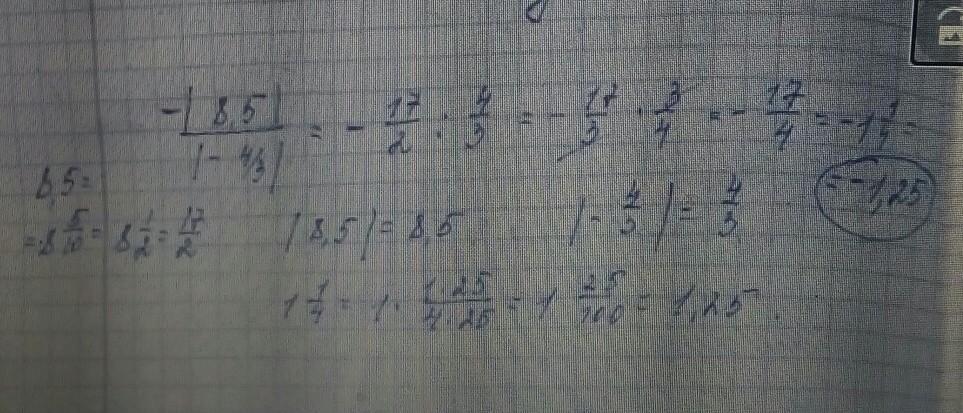 -|8,5| / |- 4/3| = - 17/2 : 4/3 = - 17/3 · 3/4 = - 17/4 = -1 1/4 =
= -1,25
8,5 =
= 8 5/10 = 8 1/2 = 17/2
|8,5| = 8,5
|- 4/3| = 4/3
1 1/4 = 1 · 1·25/4·25 = 1 25/100 = 1,25